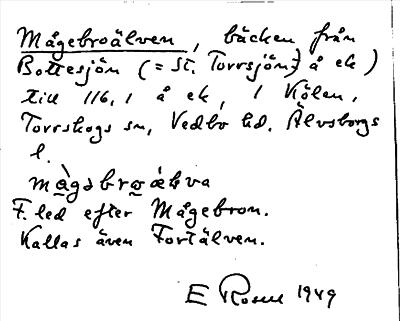 Mågebroälven, bäcken från
Bottesjön (= St. Torrsjön å ek)
till 116,1 å ek, i Kölen,
Torrskogs sn, Vedbo hd. Älvsborgs
l.
F. led efter Mågebron.
Kallas även Fortälven.
E Rosell 1949